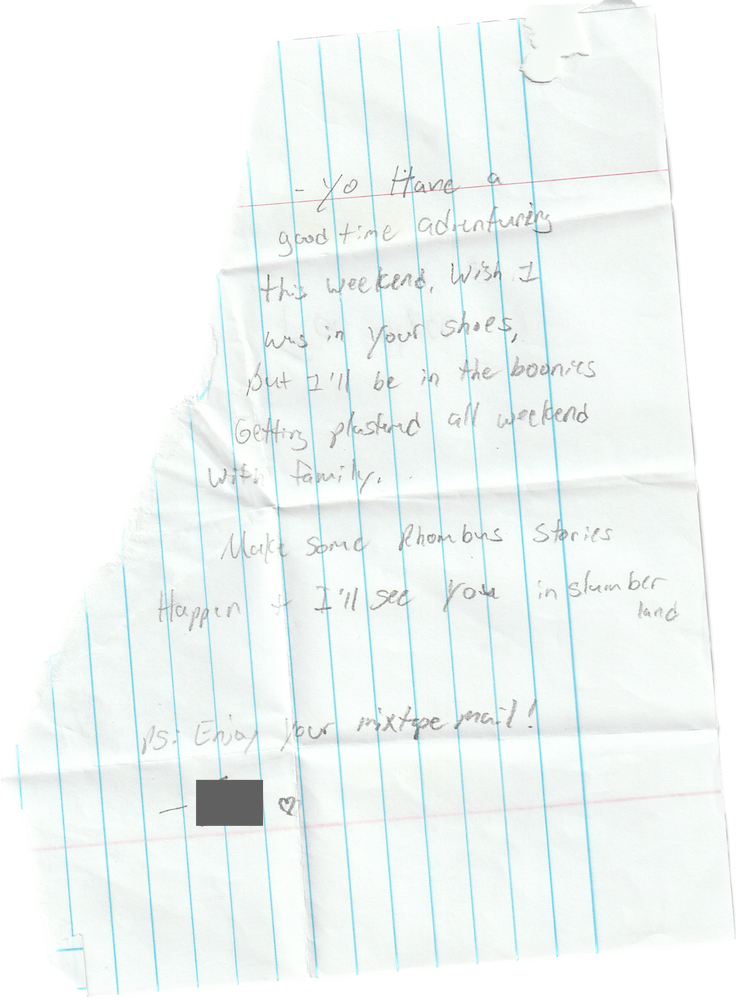 - Yo Have a
good time adventuring
this weekend. Wish I
was in your shoes,
but I'll be in the boonies
Getting plastered all weekend
with family.
Make some Rhombus Stories
Happen + I'll see you in slumber
land
Ps: Enjoy your mixtape mail!
- ♡